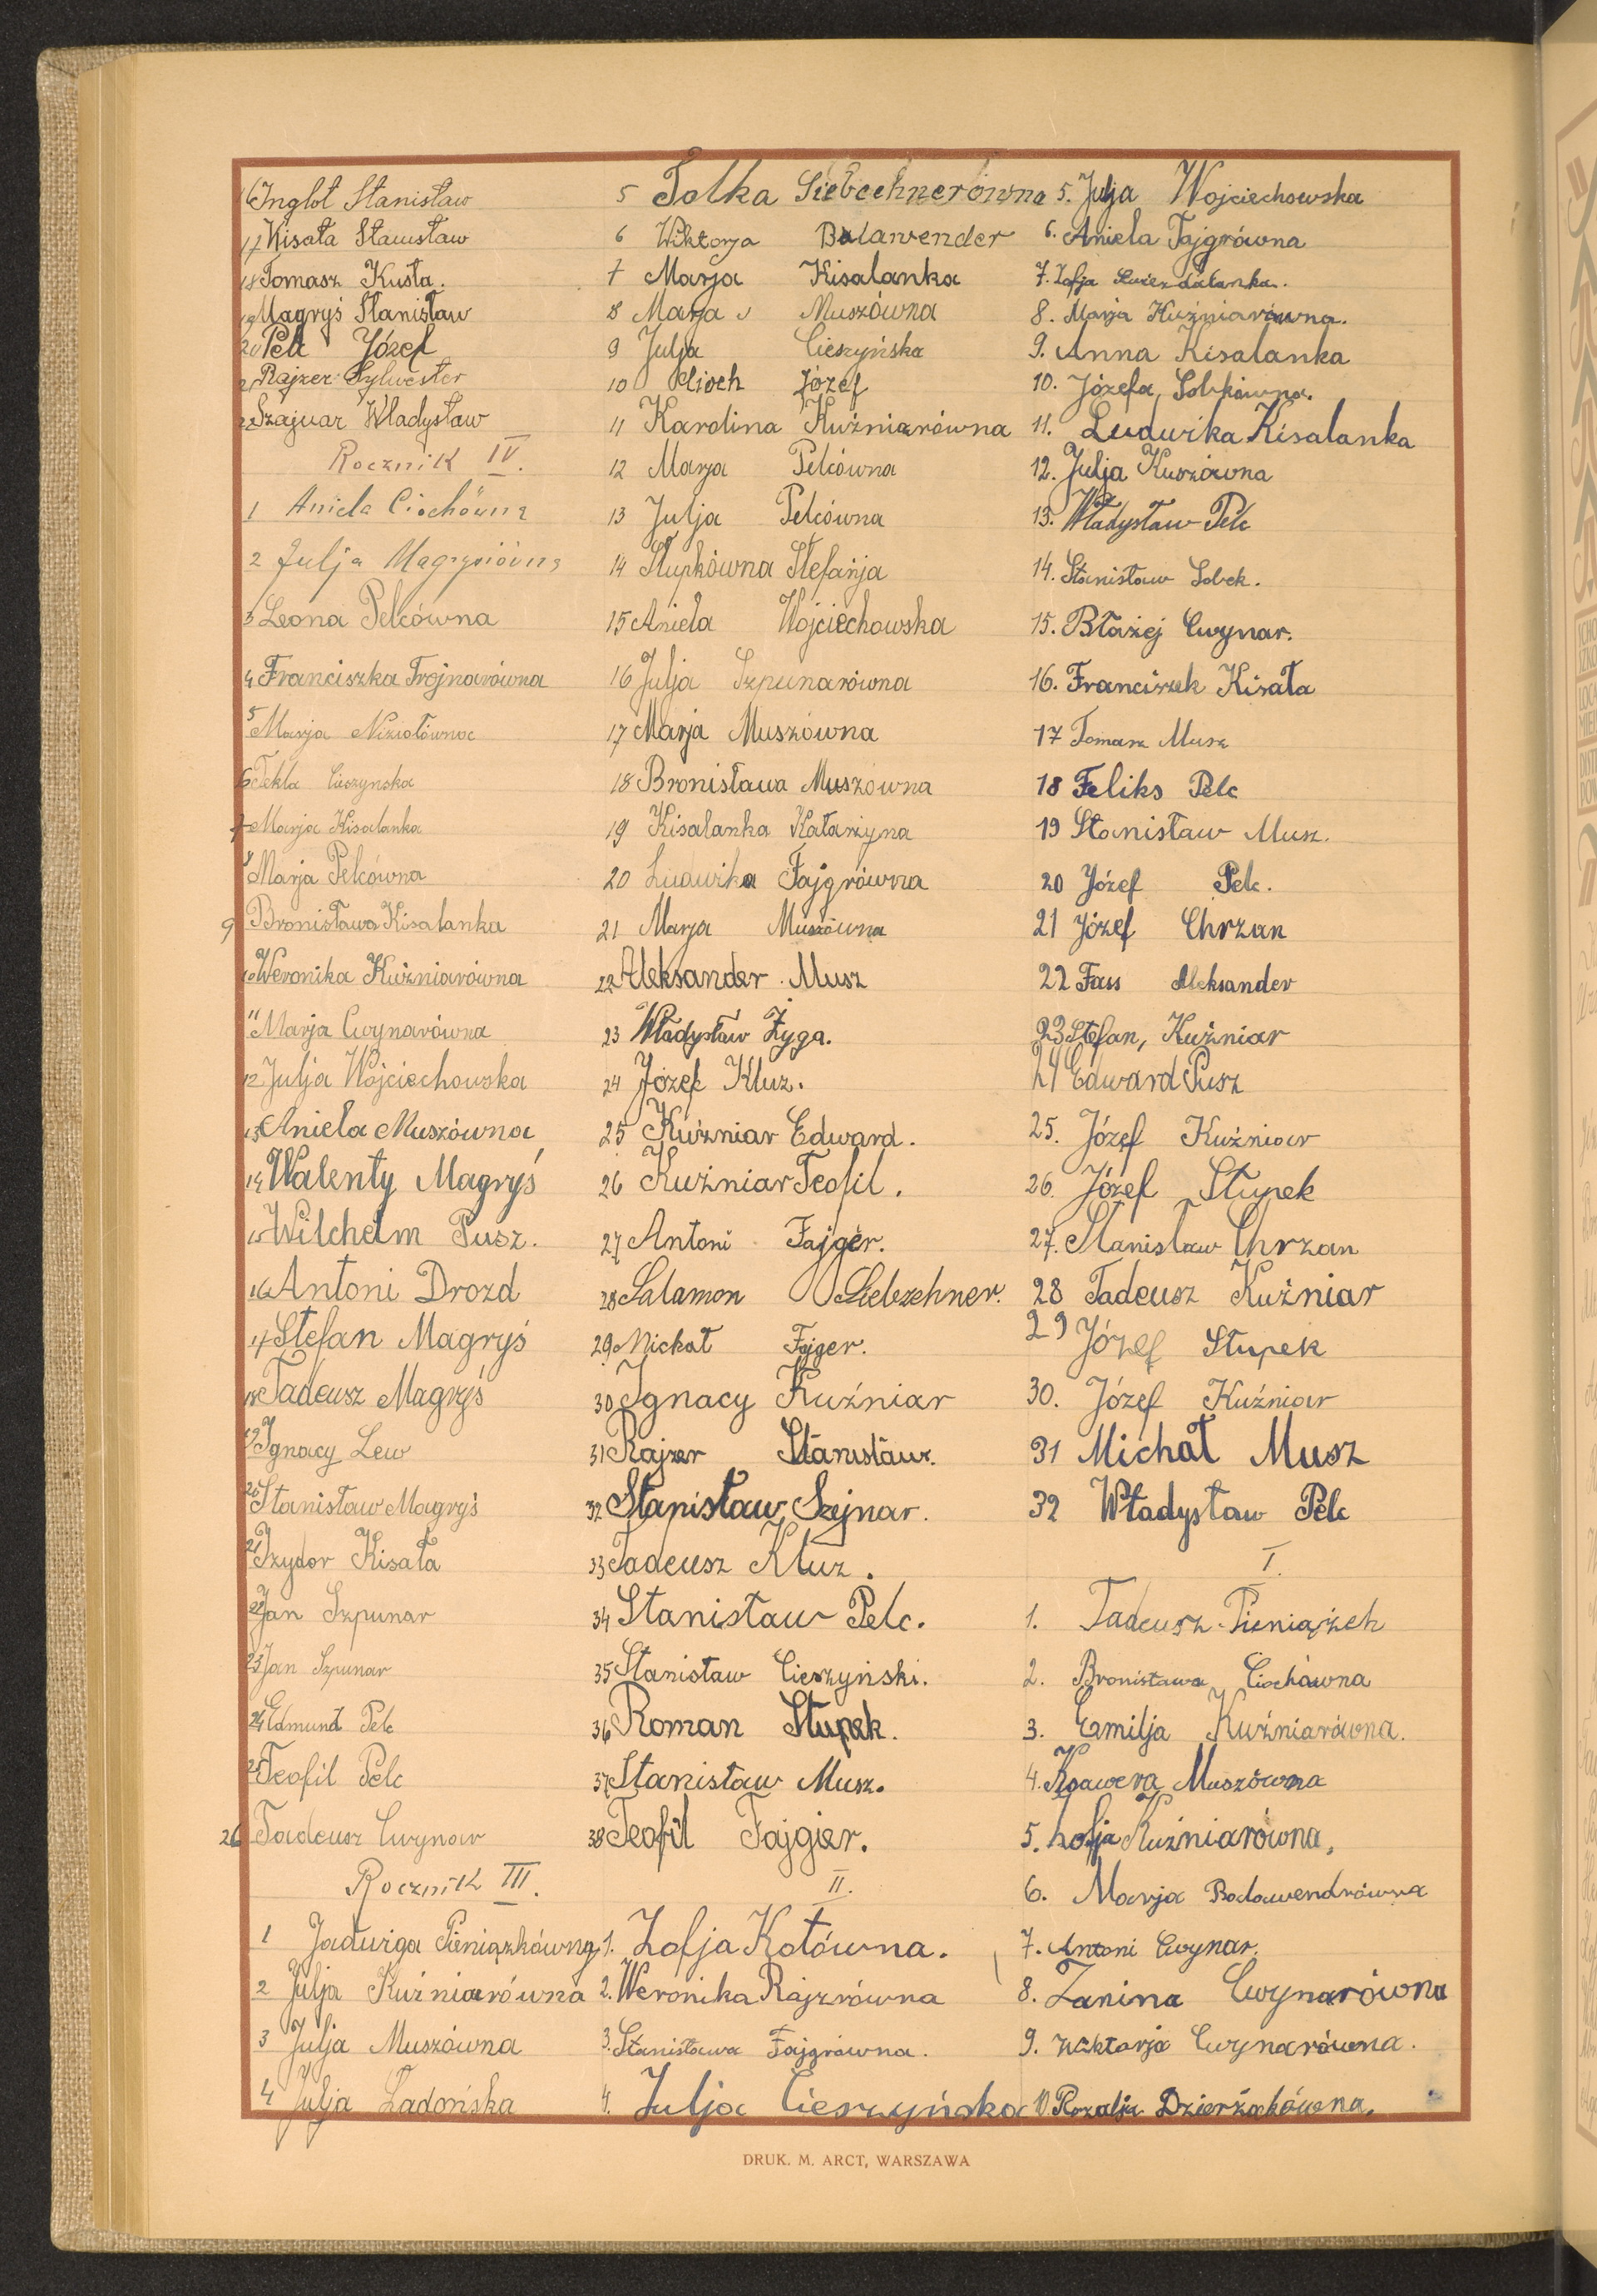 16 Inglot Stanisław
17 Kisała Stanisław
18 Tomasz Kusta.
19 Magryś Stanisław
20 Pelc Józef
21 Rajzer Sylwester
22 Szajnar Władysław
Rocznik IV.
1 Aniela Ciochówna
2 Julja Magrysiówna
3 Leona Pelcówna
4 Franciszka Trojnarówna
5 Marja Niziołówna
6 Tekla Cieszynska
7 Marja Kisalanka
8 Marja Pelcówna
9 Bronisława Kisalanka
10 Weronika Kuźniarówna
11 Marja Cwynarówna
12 Julja Wojciechowska
13 Aniela Muszówna
14 Walenty Magryś
15 Wilchelm Pusz.
16 Antoni Drozd
17 Stefan Magryś
18 Tadeusz Magryś
19 Ignacy Lew
20 Stanisław Magryś
21 Izydor Kisała
22 Jan Szpunar
23 Jan Szpunar
24 Edmund Pelc
25 Teofil Pelc
26 Tadeusz Cwynar
Rocznik III.
1 Jadwiga Pieniązkówna
2 Julja Kuźniarówna
3 Julja Muszówna
4 Julja Ladońska
5 Tolka Siebechnerówna
6 Wiktorja Balawender
7 Marja Kisalanka
8 Marja Muszówna
9 Julja Cieszyńska
10 Cioch Józef
11 Karolina Kuźniarówna
12 Marja Pelcówna
13 Julja Pelcówna
14 Słupkówna Stefanja
15 Aniela Wojciechowska
16 Julja Szpunarówna
17 Marja Muszówna
18 Bronisława Muszówna
19 Kisalanka Katarzyna
20 Ludwika Fajgrówna
21 Marja Muszówna
22 Aleksander Musz
23 Władysław Żyga.
24 Józef Kluz.
25 Kuźniar Edward.
26 Kuźniar Teofil.
27 Antoni Fajger.
28 Salamon Liebzehner.
29 Michał Fajger.
30 Ignacy Kuźniar
31 Rajzer Stanisław.
32 Stanisław Szejnar.
33 Tadeusz Kluz.
34 Stanisław Pelc.
35 Stanisław Cieszyński.
36 Roman Słupek.
37 Stanisław Musz.
38 Teofil Fajgier.
II.
1. Zofja Kotówna.
2. Weronika Rajzrówna
3. Stanisława Fajgrówna.
4. Julja Cieszyńska
5. Julja Wojciechowska
6. Aniela Fajgrówna
7. Zofja
8. Marja Kuźniarówna.
9. Anna Kisalanka
10. Józefa Sobkówna.
11. Ludwika Kisalanka
12. Julja Kuszówna
13. Władysław Pelc
14. Stanisław Sobek.
15. Błażej Cwynar.
16. Franciszek Kisała
17 Tomasz Musz
18 Feliks Pelc
19 Stanisław Musz.
20 Józef Pelc.
21 Józef Chrzan
22 Fass Aleksander
23 Stefan, Kuźniar
24 Edward Pusz
25. Józef Kuźniar
26. Józef Słupek
27. Stanisław Chrzan
28 Tadeusz Kuźniar
29 Józef Słupek
30. Józef Kuźniar
31 Michał Musz
32 Władysław Pelc
I.
1. Tadeusz Pieniążek
2. Bronisława Ciochówna
3. Emilja Kuźniarówna.
4. Ksawera Muszówna
5. Zofja Kuźniarówna,
6. Marja Badawendrówna
7. Antoni Cwynar.
8. Zanina Cwynarówna
9. Wiktorja Cwynarówna.
10. Rozalja Dzierżakówna,
DRUK. M. ARCT, WARSZAWA